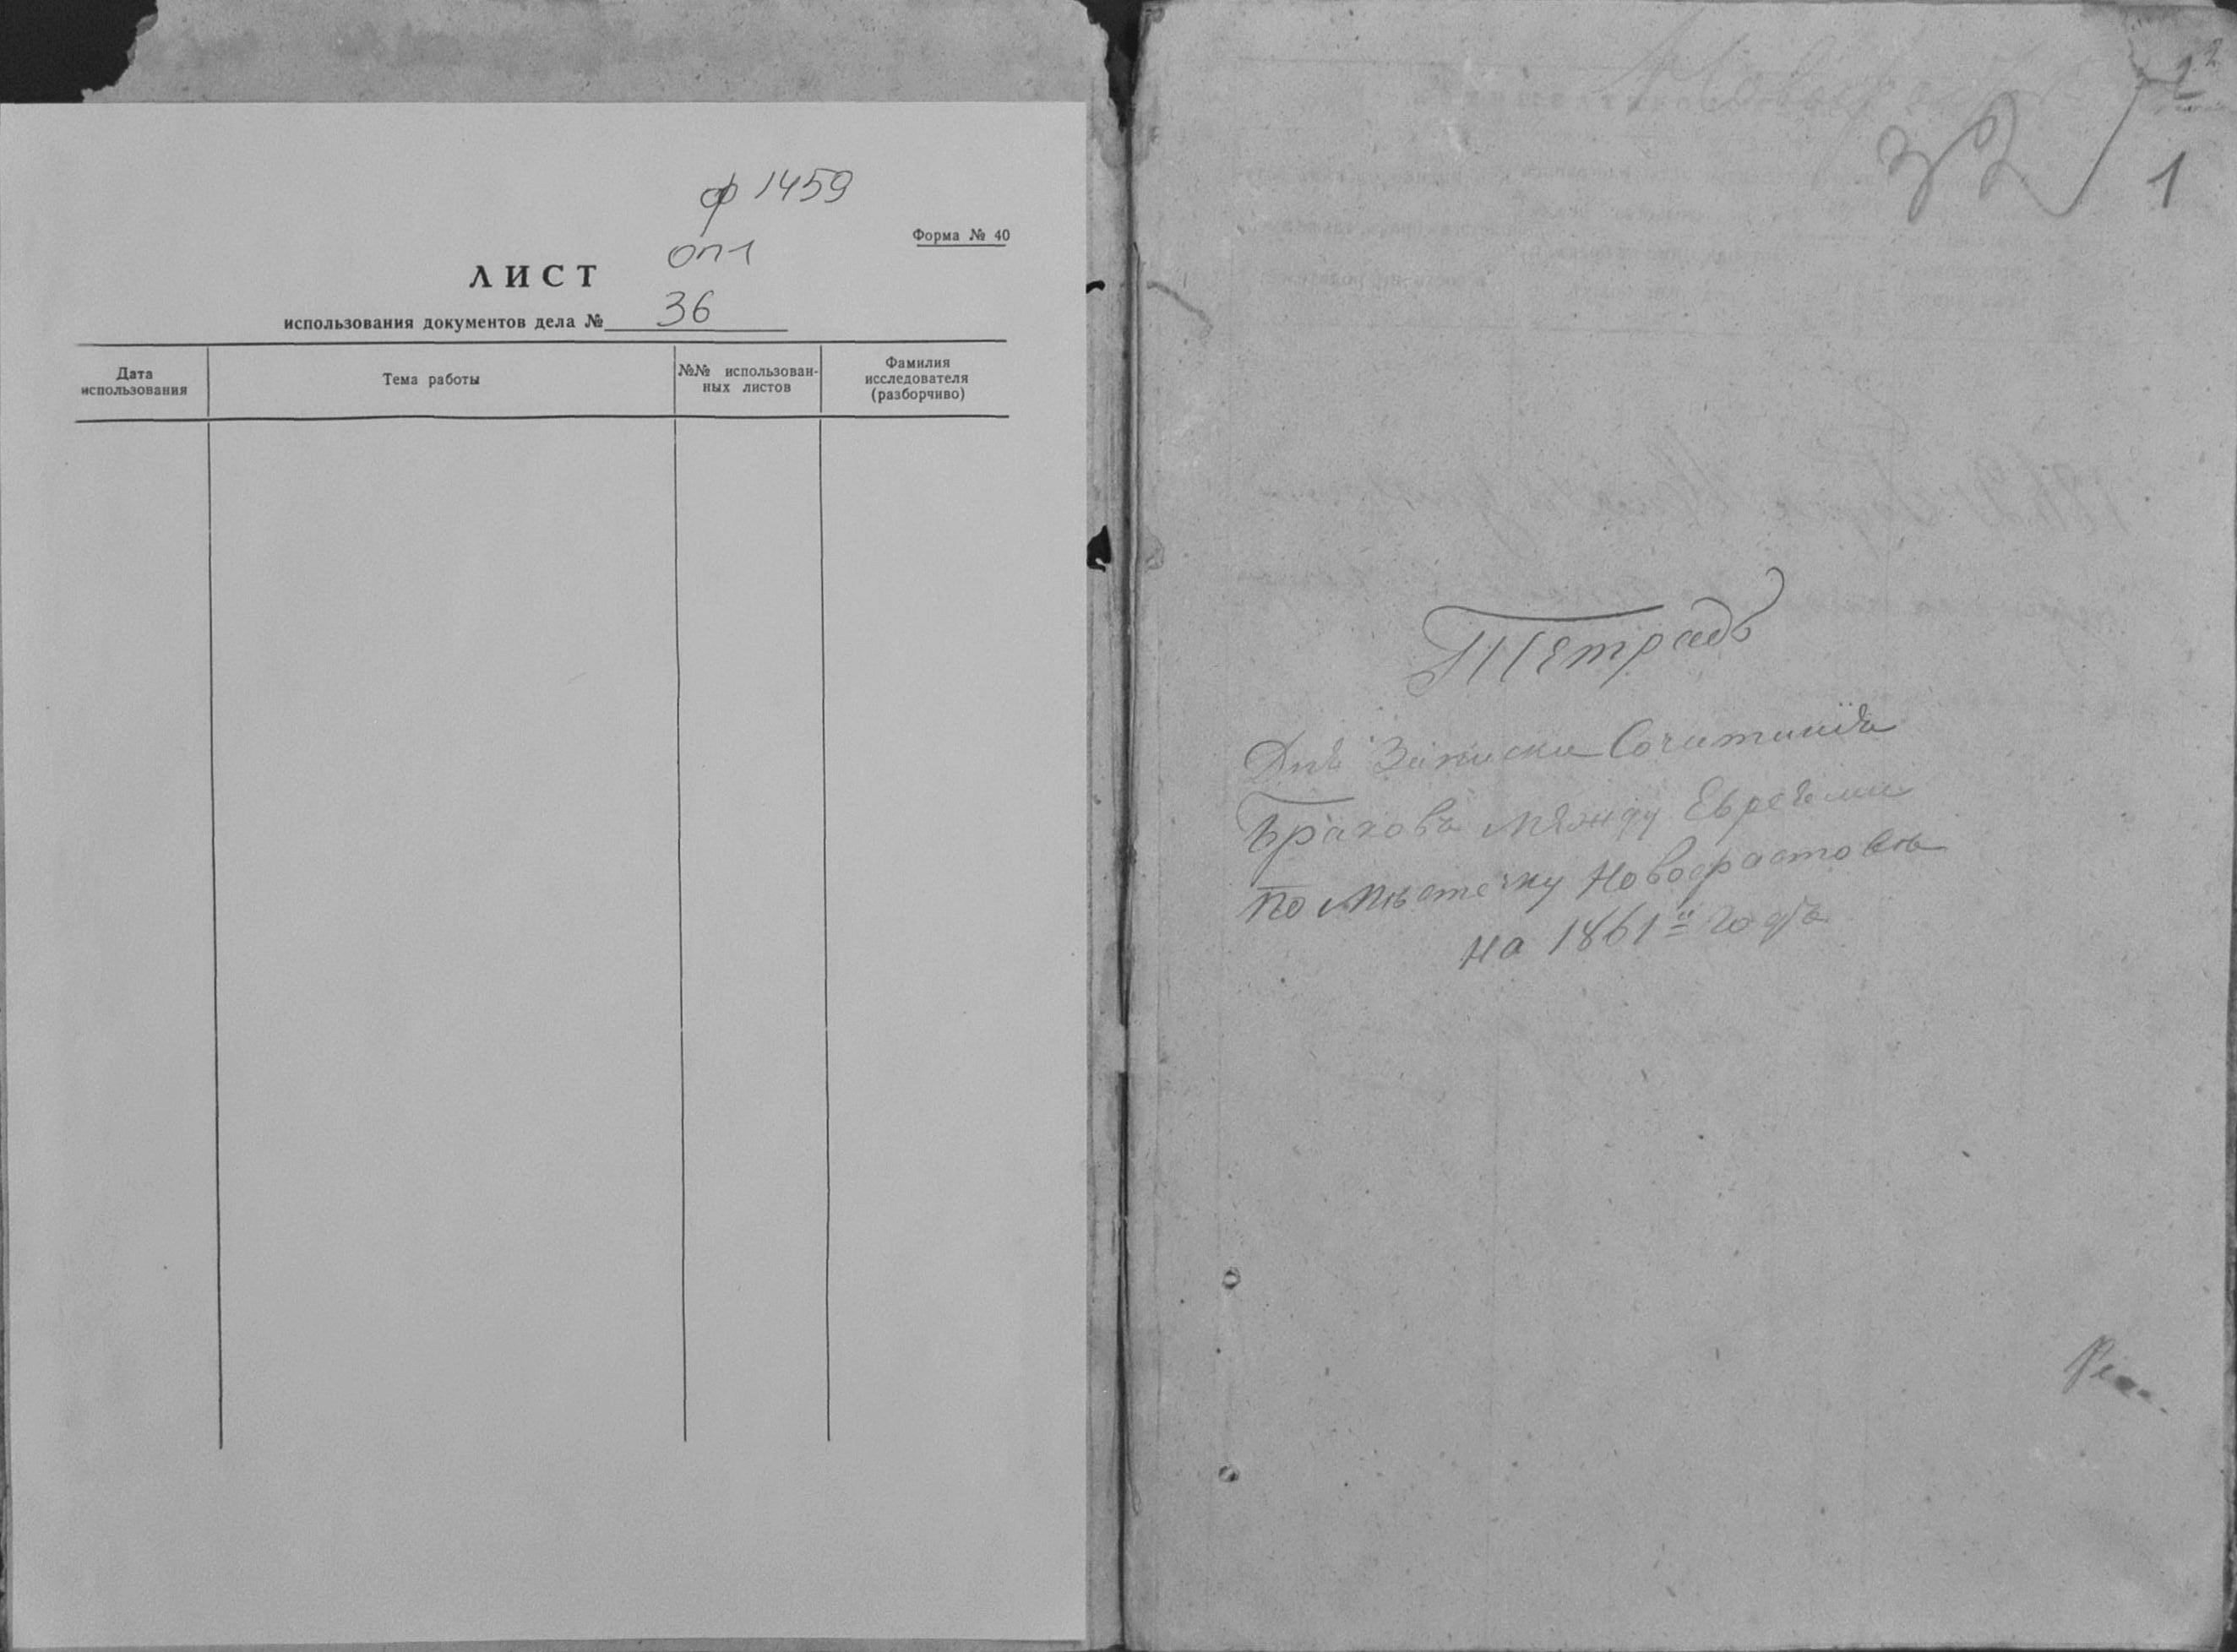 ф 1459
Форма № 40
оп 1
ЛИСТ
использования документов дела № 36
Дата
использования
Тема работы
№№ использован-
ных листов
Фамилия
исследователя
(разборчиво)
2
1
Тетрадь
Для Записки Сочитанія
Браковъ между Евреями
по мѣстечку Новофастовкѣ
на 1861й годъ